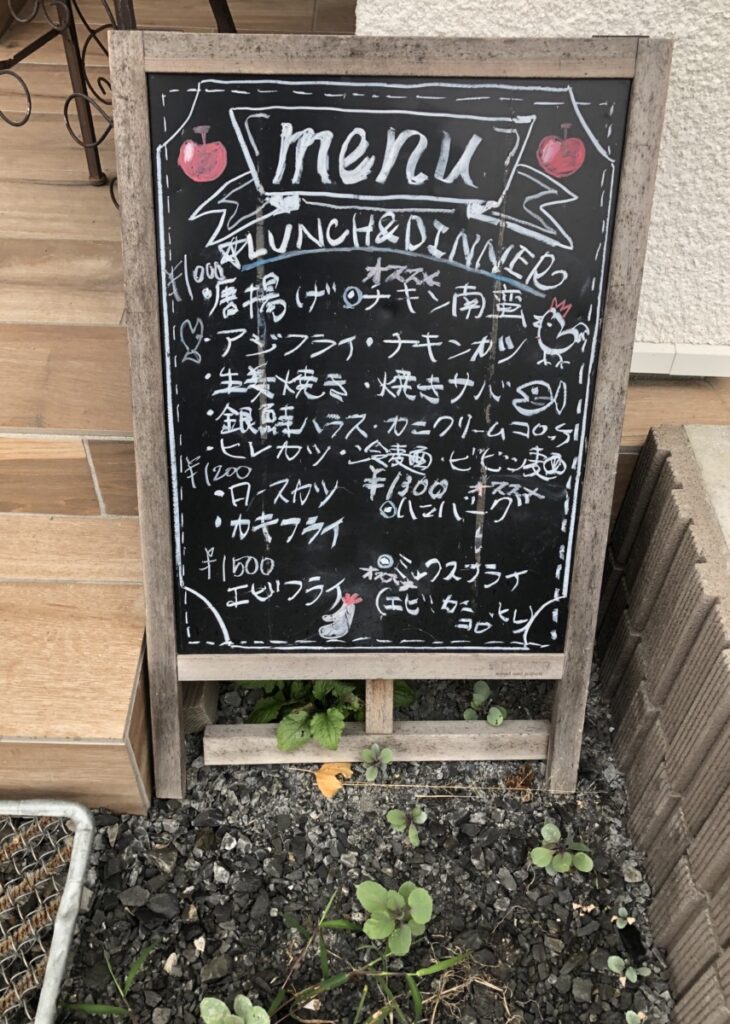 menu
LUNCH&DINNER
¥1000
オススメ
・唐揚げ ◎チキン南蛮
・アジフライ・チキンカツ
・生姜焼き・焼きサバ
・銀鮭ハラス・カニクリームコロッケ
・ヒレカツ・冷麺・ビビン麺
¥1200
・ロースカツ
・カキフライ
¥1300 オススメ
◎ハンバーグ
¥1500
エビフライ
◎ミックスフライ
オススメ
(エビ・カニコロ・ヒレ)